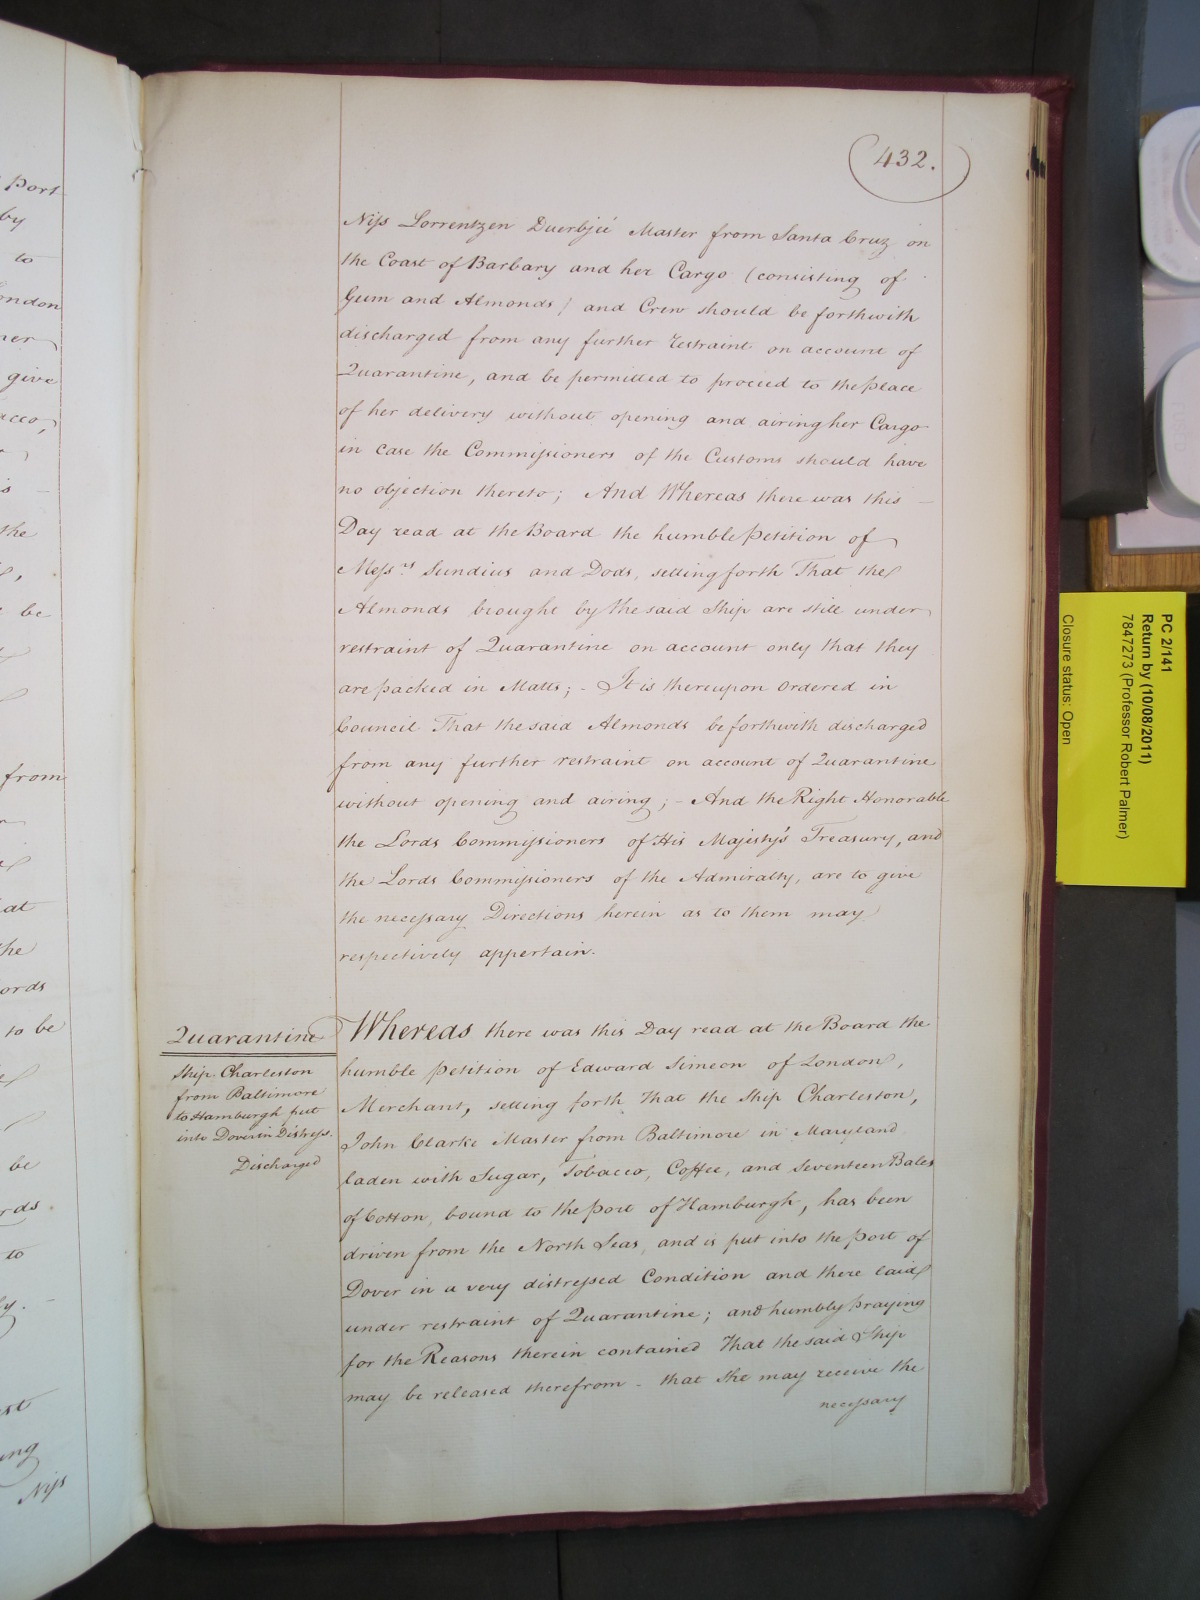 432.
Niss Lorrentzen Duerbjeé Master from Santa Cruz on
the Coast of Barbary and her Cargo (consisting of
Gum and Almonds) and Crew should be forthwith
discharged from any further restraint on account of
Quarantine, and be permitted to proceed to the place
of her delivery without opening and airing her Cargo
in case the Commissioners of the Customs should have
no objection thereto; And Whereas there was this –
Day read at the Board the humble Petition of
Messrs Sundius and Dods, setting forth That the
Almonds brought by the said Ship are still under
restraint of Quarantine on account only that they
are packed in Matts; - It is thereupon Ordered in
Council That the said Almonds be forthwith discharged
from any further restraint on account of Quarantine
without opening and airing; - And the Right Honorable
the Lords Commissioners of His Majesty's Treasury, and
the Lords Commissioners of the Admiralty, are to give
the necessary Directions herein as to them may
respectively appertain.
Quarantine
Ship Charleston
from Baltimore
to Hamburgh put
into Dover in Distress.
Discharged
Whereas there was this Day read at the Board the
humble petition of Edward Simeon of London,
Merchant, setting forth That the Ship Charleston,
John Clarke Master from Baltimore in Maryland
laden with Sugar, Tobacco, Coffee, and Seventeen Bales
of Cotton, bound to the port of Hamburgh, has been
driven from the North Seas, and is put into the port of
Dover in a very distressed Condition and there laid
under restraint of Quarantine; and humbly praying
for the Reasons therein contained That the said Ship
may be released therefrom - that She may receive the
necessary
Port
by
to
ondon
ner
give
acco,
the
be
from
at
the
ords
to be
be
rds
to
ly. -
ung
Niss
PC 2/141
Return by (10/08/2011)
7847273 (Professor Robert Palmer)
Closure status: Open